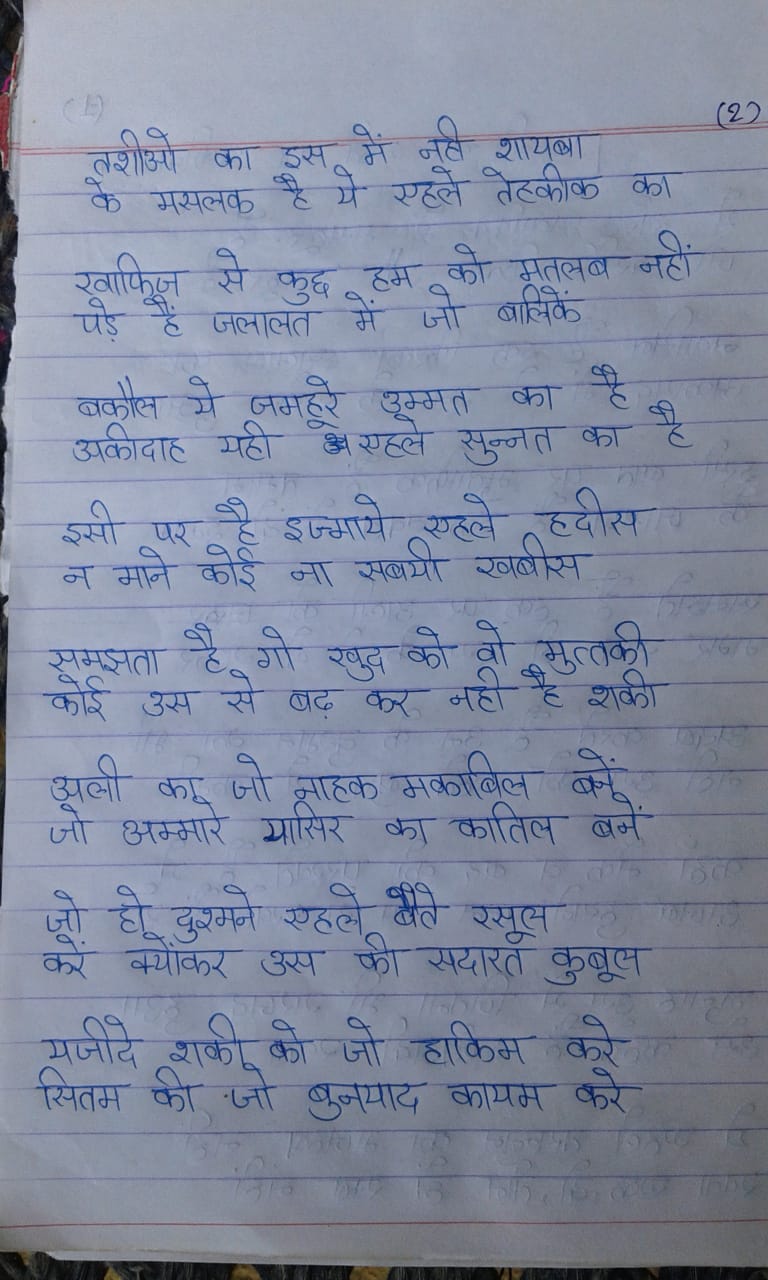 (2)
तशीओ का इस में नही शायबा
के मसलक है ये एहले तेहकीक का
रवाफिज से कुछ हम को मतलब नहीं
पड़े हैं जलालत में जो बालिकें
बकौल ये जमहूरे उम्मत का है
अकीदाह यही एहले सुन्नत का है
इसी पर है इज्माये एहले हदीस
न माने कोई ना सबयी खबीस
समझता है गो खुद को वो मुत्तकी
कोई उस से बढ़ कर नही है शकी
अली का जो नाहक मकाबिल बनें
जो अम्मारे यासिर का कातिल बनें
जो हो दुश्मने एहले बैते रसूल
करें क्योंकर उस की सदारत कुबूल
यजीदे शकी को जो हाकिम करे
सितम की जो बुनयाद कायम करे